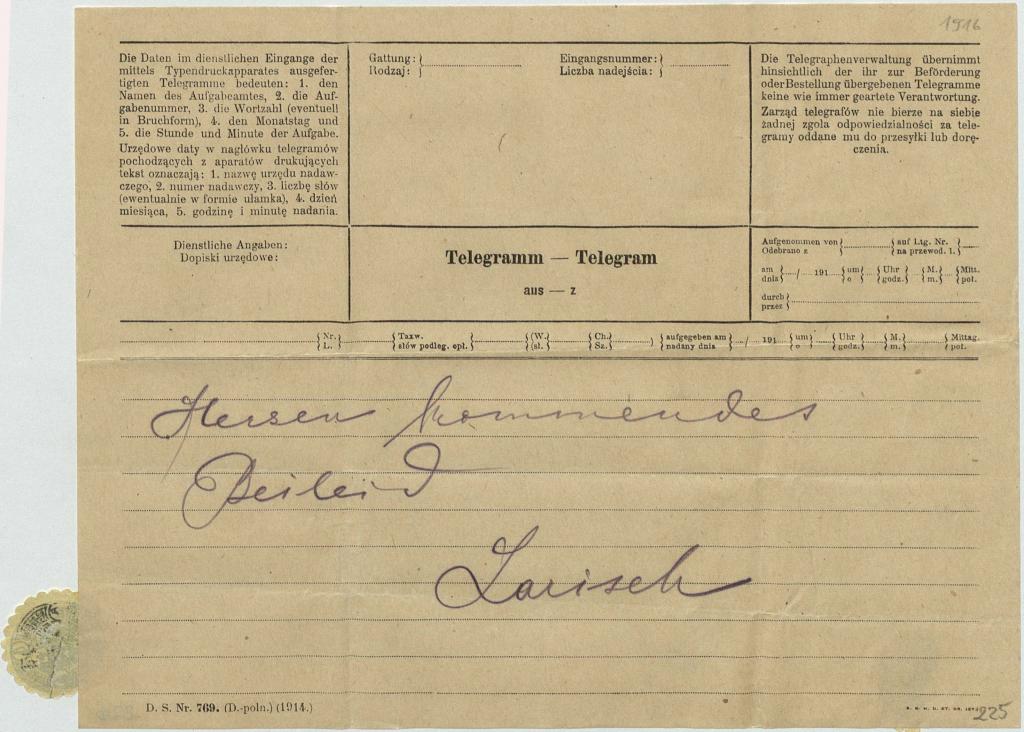 1916
Die Daten im dienstlichen Eingange der
mittels Typendruckapparates ausgefer-
tigten Telegramme bedeuten: 1. den
Namen des Aufgabeamtes, 2. die Auf-
gabenummer, 3. die Wortzahl (eventuell
in Bruchform), 4. den Monatstag und
5. die Stunde und Minute der Aufgabe.
Urzędowe daty w nagłówku telegramów
pochodzących z aparatów drukujących
tekst oznaczają: 1. nazwę urzędu nadaw-
czego, 2. numer nadawczy, 3. liczbę słów
(ewentualnie w formie ułamka), 4. dzień
miesiąca, 5. godzinę i minutę nadania.
Gattung: Eingangsnummer:
Rodzaj: Liczba nadejścia:
Die Telegraphenverwaltung übernimmt
hinsichtlich der ihr zur Beförderung
oder Bestellung übergebenen Telegramme
keine wie immer geartete Verantwortung.
Zarząd telegrafów nie bierze na siebie
żadnej zgoła odpowiedzialności za tele-
gramy oddane mu do przesyłki lub dorę-
czenia.
Dienstliche Angaben:
Dopiski urzędowe:
Telegramm — Telegram
aus — z
Aufgenommen von auf Ltg. Nr.
Odebrano z na przewod. l.
am / 191 um Uhr M. Mitt.
dnia o godz. m. poł.
durch
przez
Nr. Taxw. (W. Ch. ) aufgegeben am / 191 um Uhr M. Mittag.
L. słów podleg. opł. (sł. Sz. nadany dnia o godz. m. poł.
Herzen kommendes
Beileid
Larisch
50
D. S. Nr. 769. (D.-poln.) (1914.)
225